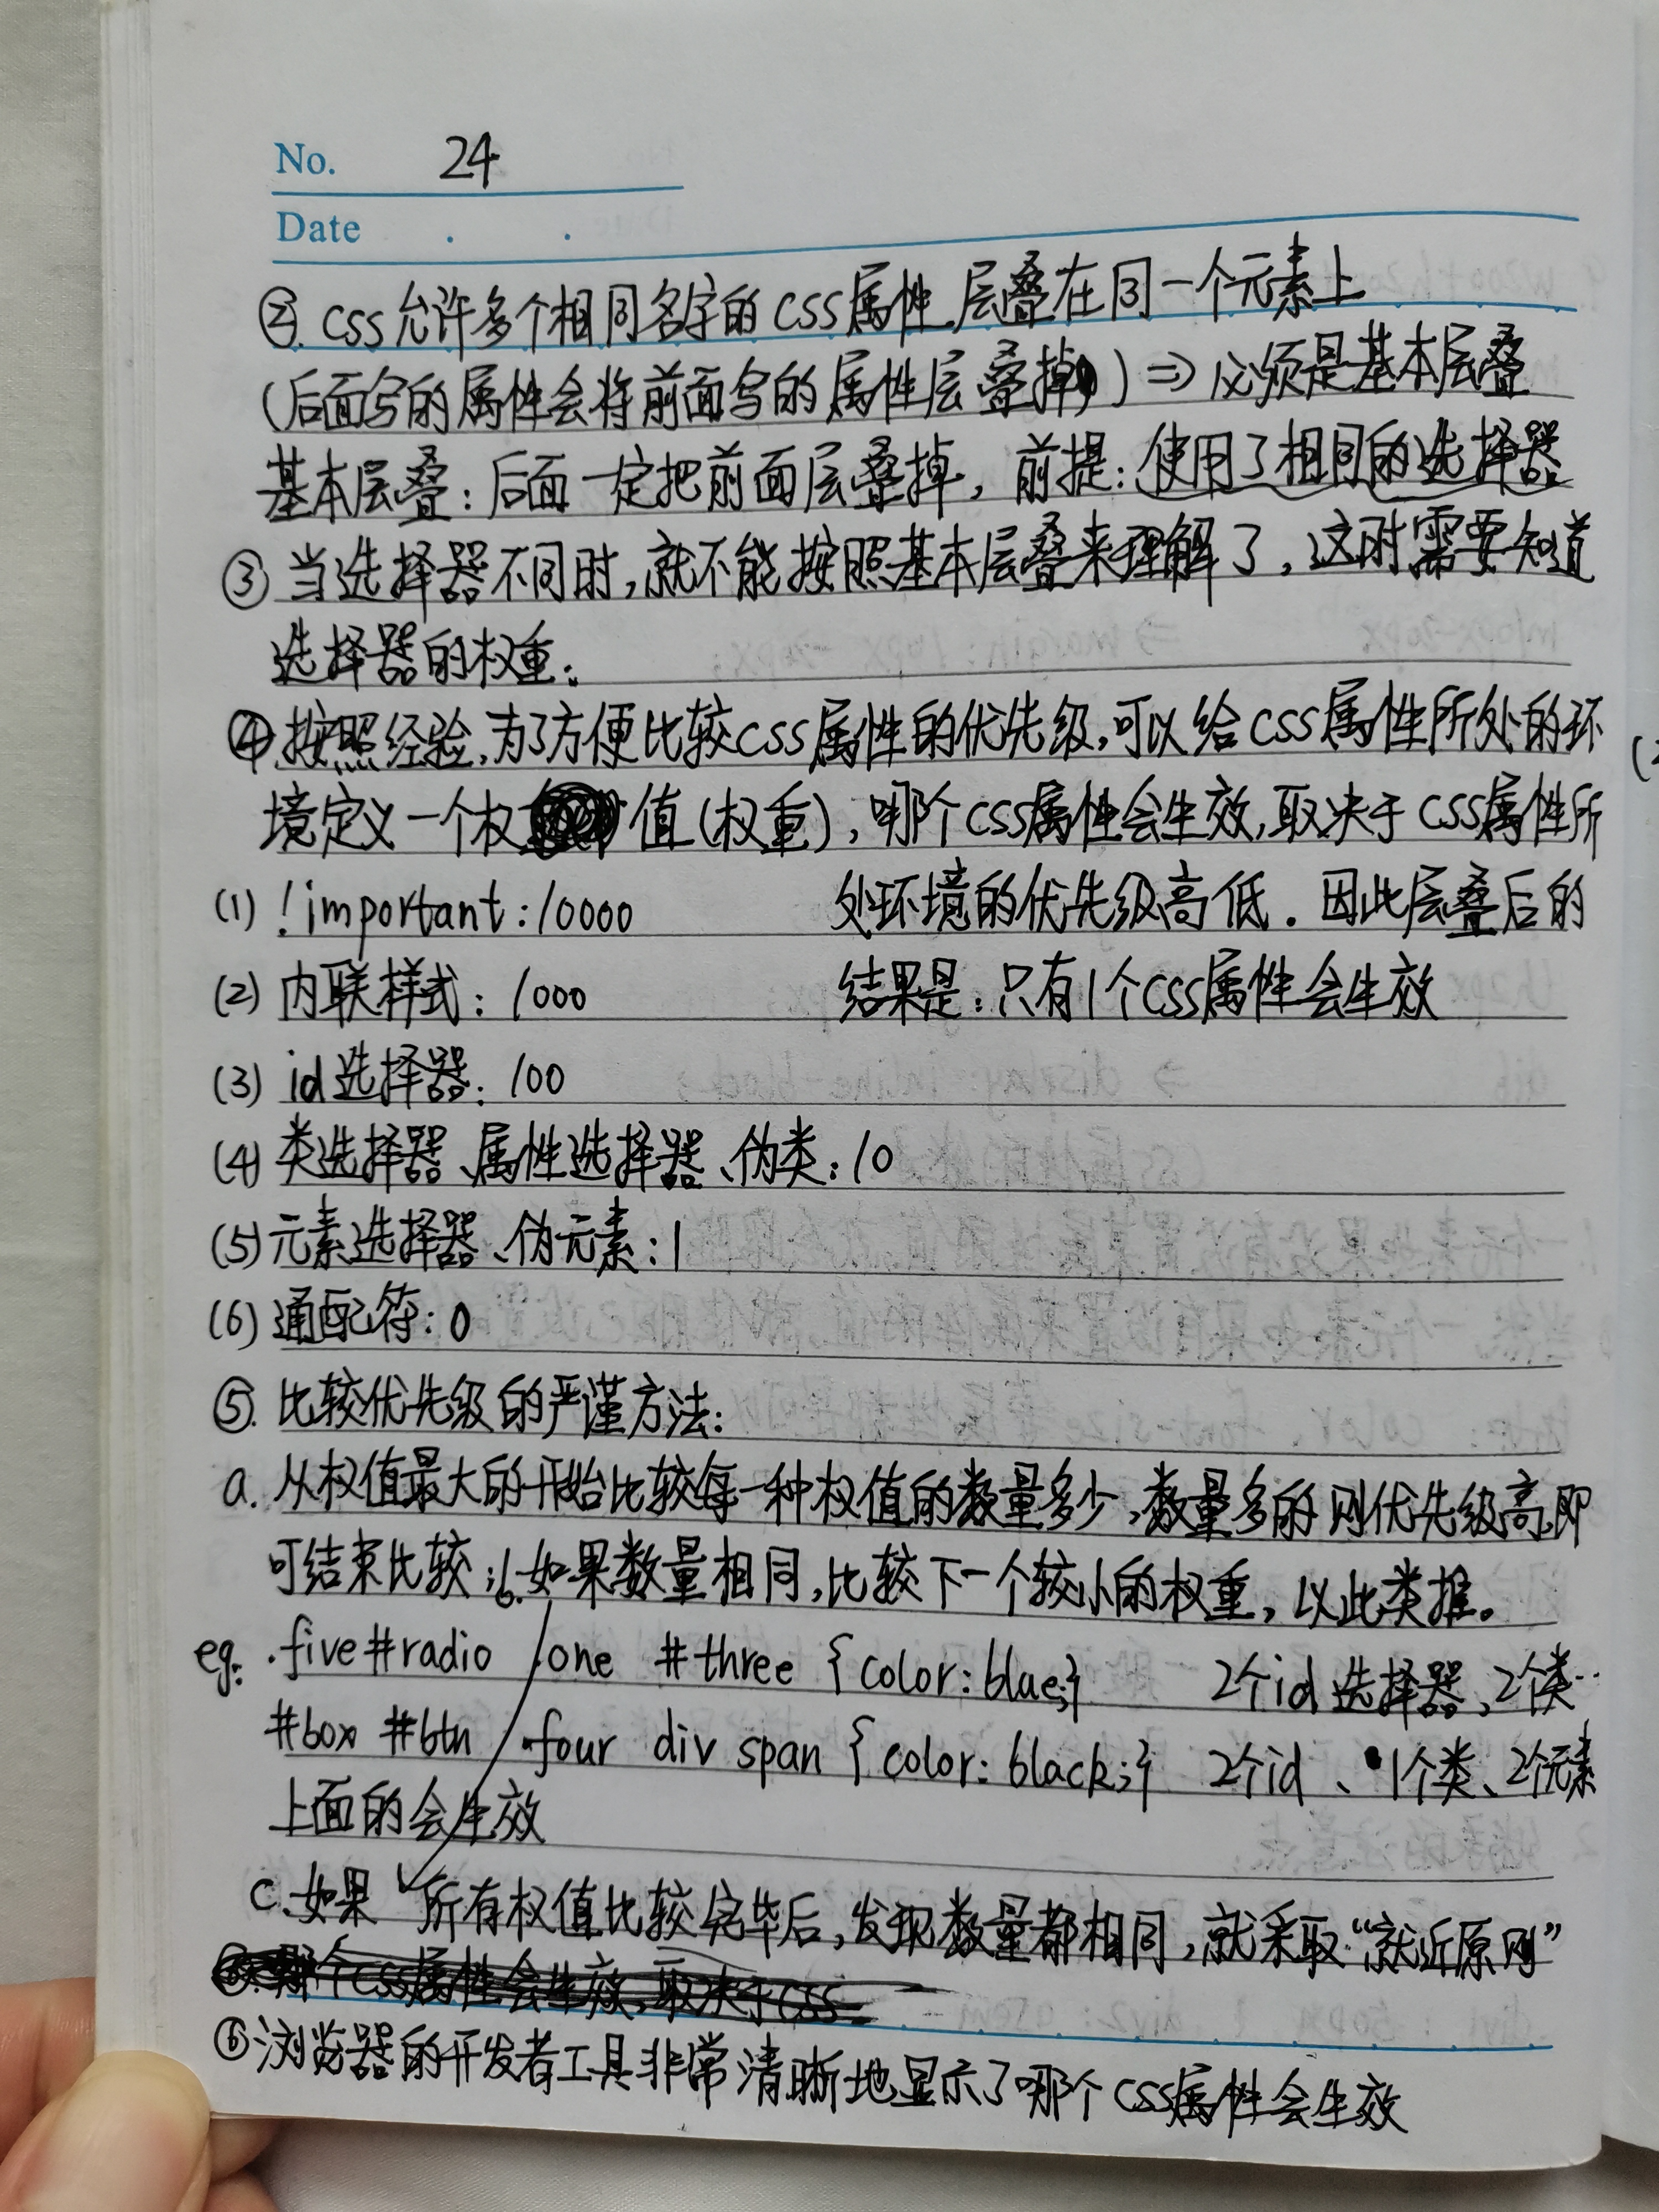 No. 24
Date . .
②. CSS允许多个相同名字的CSS属性层叠在同一个元素上
(后面写的属性会将前面写的属性层叠掉) ⇒ 必须是基本层叠
基本层叠：后面一定把前面层叠掉，前提：使用了相同的选择器
③ 当选择器不同时，就不能按照基本层叠来理解了，这时需要知道
选择器的权重。
④.按照经验，为了方便比较CSS属性的优先级，可以给CSS属性所处的环
境定义一个权值(权重)，哪个CSS属性会生效，取决于CSS属性所
处环境的优先级高低．因此层叠后的
结果是：只有1个CSS属性会生效
(1) !important:10000
(2) 内联样式：1000
(3) id选择器：100
(4) 类选择器、属性选择器、伪类：10
(5) 元素选择器、伪元素：1
(6) 通配符：0
⑤. 比较优先级的严谨方法：
a. 从权值最大的开始比较每一种权值的数量多少，数量多的则优先级高，即
可结束比较；b.如果数量相同，比较下一个较小的权重，以此类推。
eg: .five#radio .one #three {color:blue;} 2个id选择器、2个类..
#box #btn .four div span {color: black;} 2个id、1个类、2个元素
上面的会生效
C.如果 所有权值比较完毕后，发现数量都相同，就采取“就近原则”
⑥浏览器的开发者工具非常清晰地显示了哪个CSS属性会生效